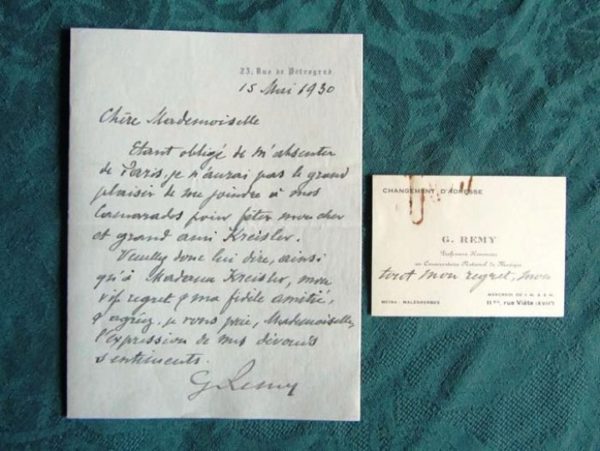 23, Rue de Pétrograd
15 Mai 1930
Chère Mademoiselle
Etant obligé de m'absenter
de Paris, je n'aurai pas le grand
plaisir de me joindre à mes
Camarades pour fêter mon cher
et grand ami Kreisler.
Veuillez donc lui dire, ainsi
qu'à Madame Kreisler, mon
vif regret & ma fidèle amitié,
& agréez, je vous prie, Mademoiselle,
l'expression de mes dévoués
sentiments.
G Remy
CHANGEMENT D'ADRESSE
G. REMY
Professeur Honoraire
au Conservatoire National de Musique
tout mon regret, mon
MÉTRO : MALESHERBES
MERCREDI DE
11 bis, rue Viète (XVIIe)